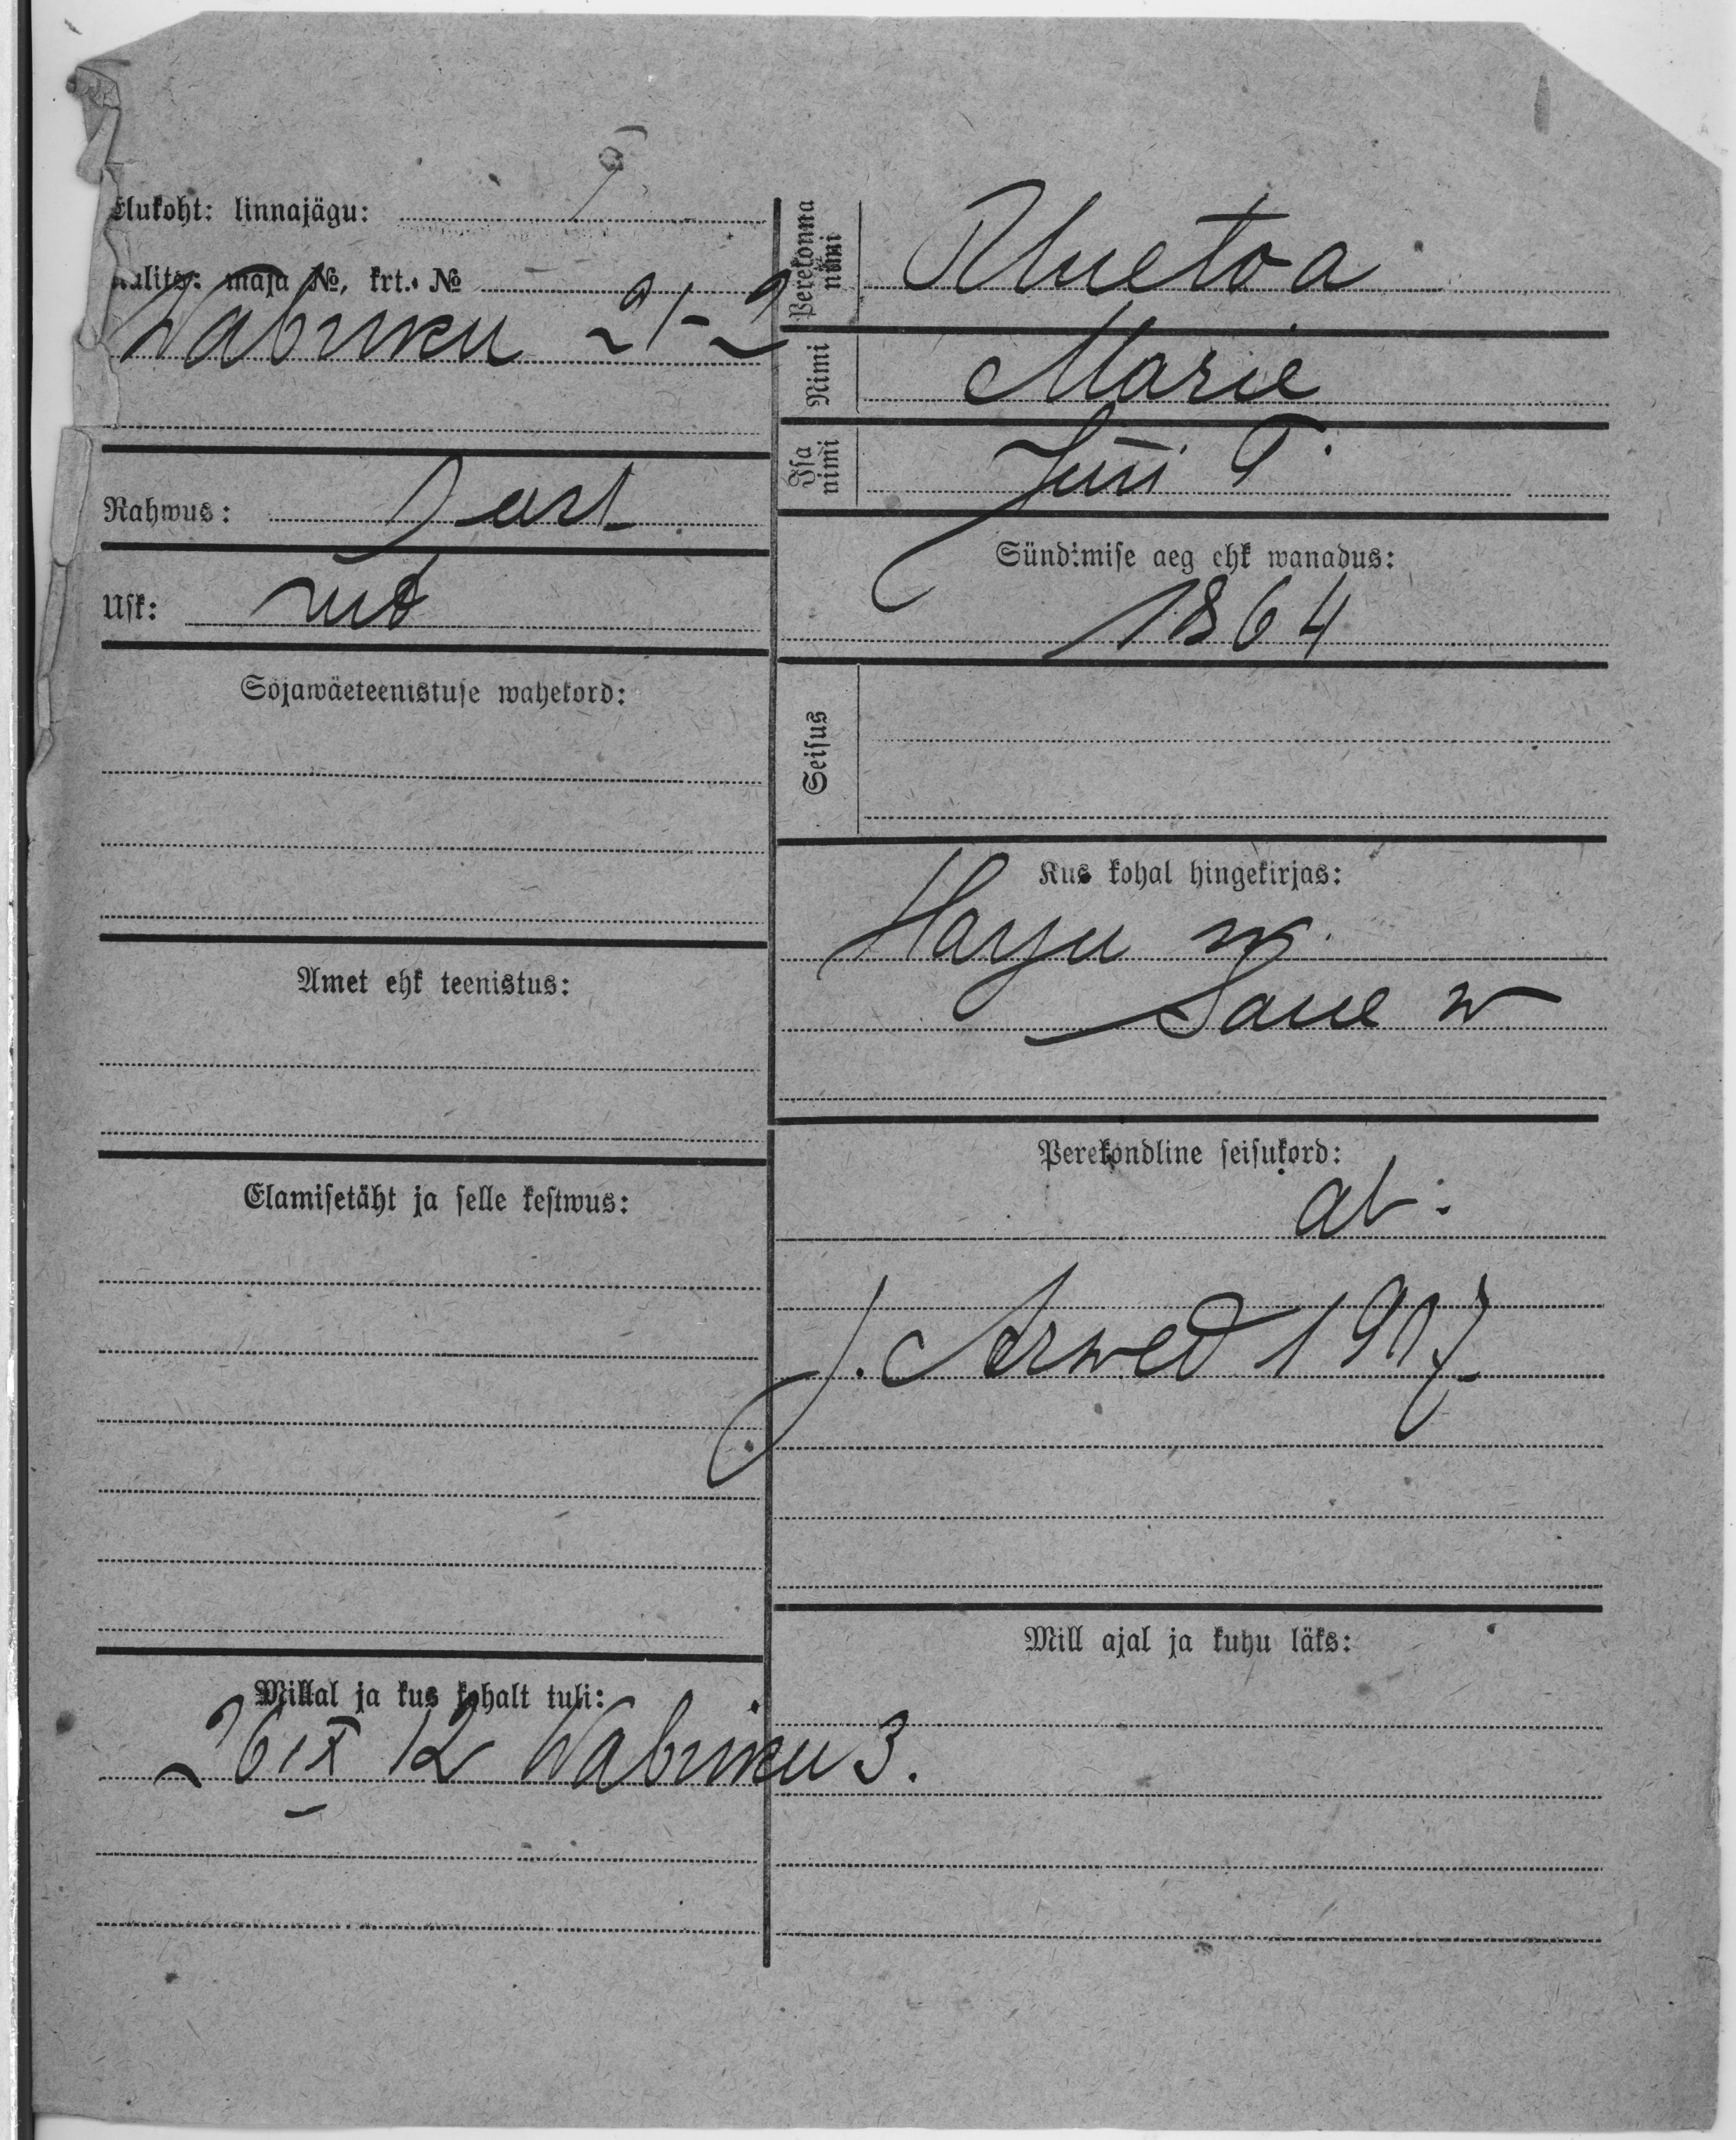 Elukoht: linnajägu:
Uulits: maja №, krt. №
Wabriku 21-2
Rahwus: east
Usk: lut
Sõjawäeteenistuse wahekord:
Amet ehk teenistus:
Elamisetäht ja selle kestwus:
Millal ja kus kohalt tuli:
26 IX 12 Wabriku 3.
Perekonna nimi
Nimi Marie
Isa nimi Jüri T.
Sündimise aeg ehk wanadus:
1864
Seisus
Kus kohal hingekirjas:
Harju w.
Saue w
Perekondline seisukord:
ab:
J. Arwed 1907
Mill ajal ja kuhu läks: